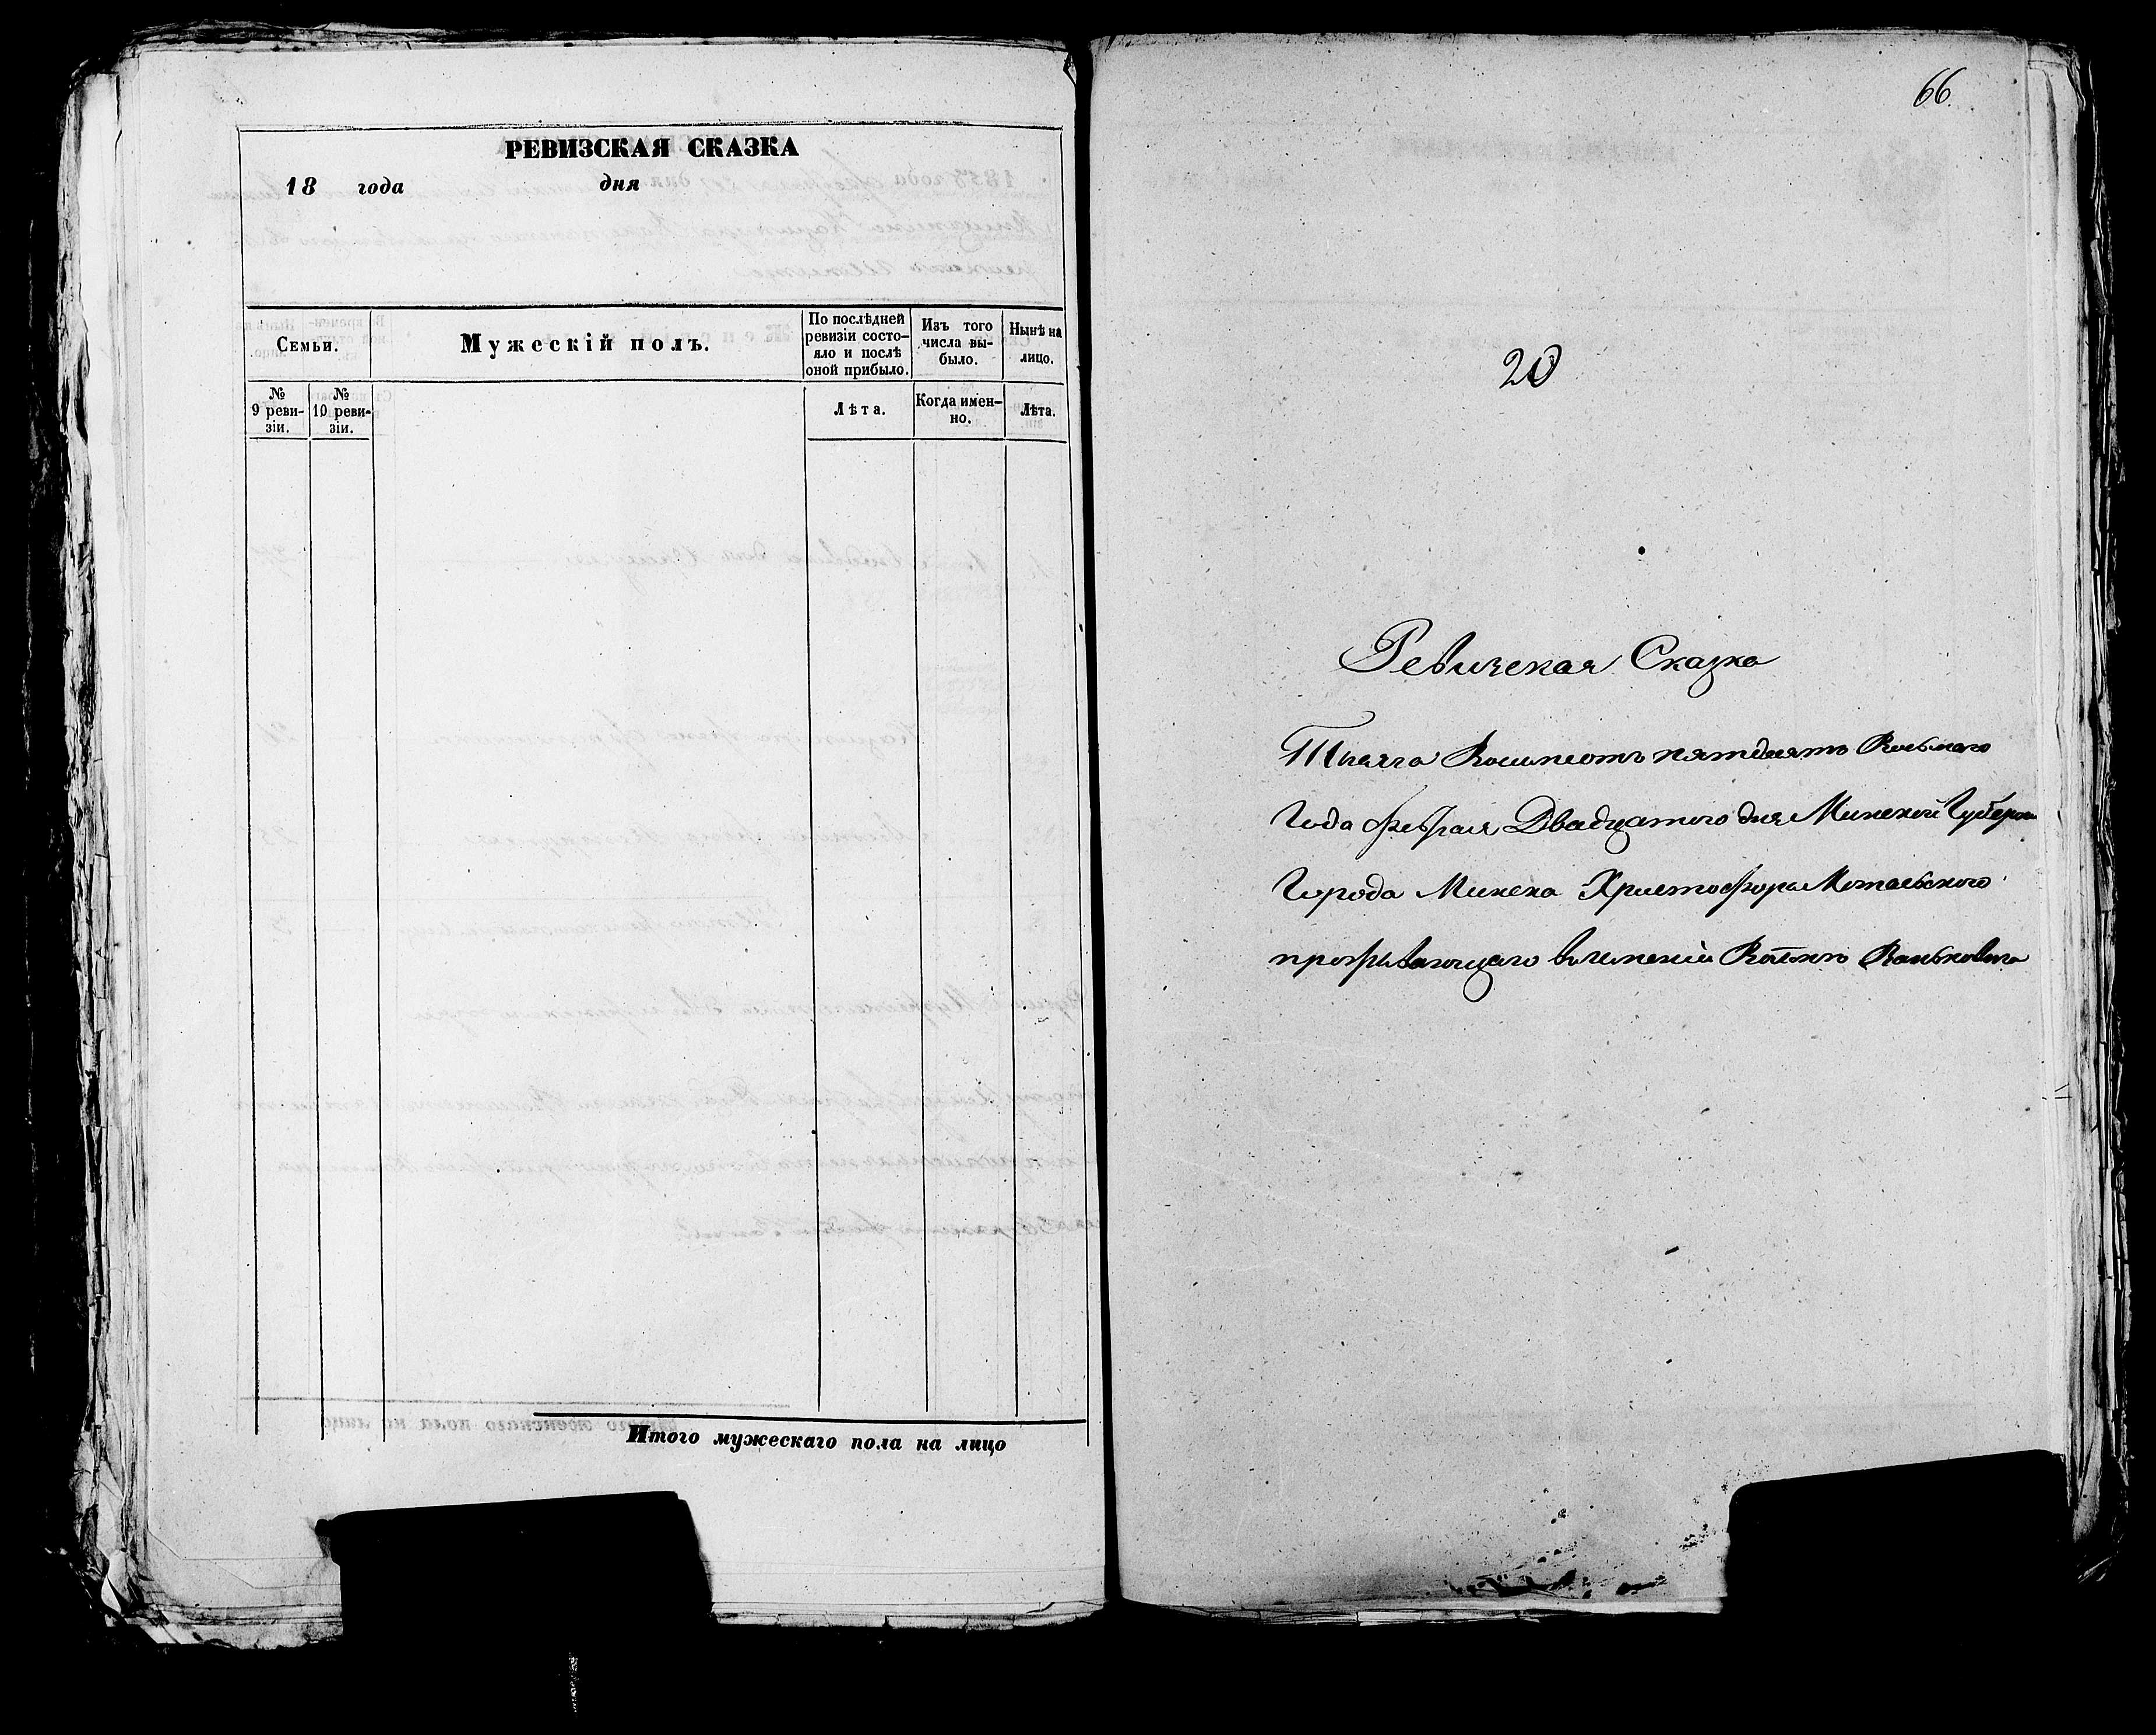 РЕВИЗСКАЯ СКАЗКА
18 года дня
Семьи.
Мужескій полъ.
По послѣдней ревизіи состо-
яло и послѣ
оной прибыло.
Изъ того
числа вы-
было.
Нынѣ на
лицо.
№
9 реви-
зіи.
№
10 реви-
зіи.
Лѣта.
Когда имен-
но.
Лѣта.
Итого мужескаго пола на лицо
66
20
Ревизская Сказка
Тысяча Восимсотъ пятдесятъ Восьмаго
Года февраля Двадцатого дня Минской Губерни
Города Минска Христофора
проживающаго въ имении Ваньковича